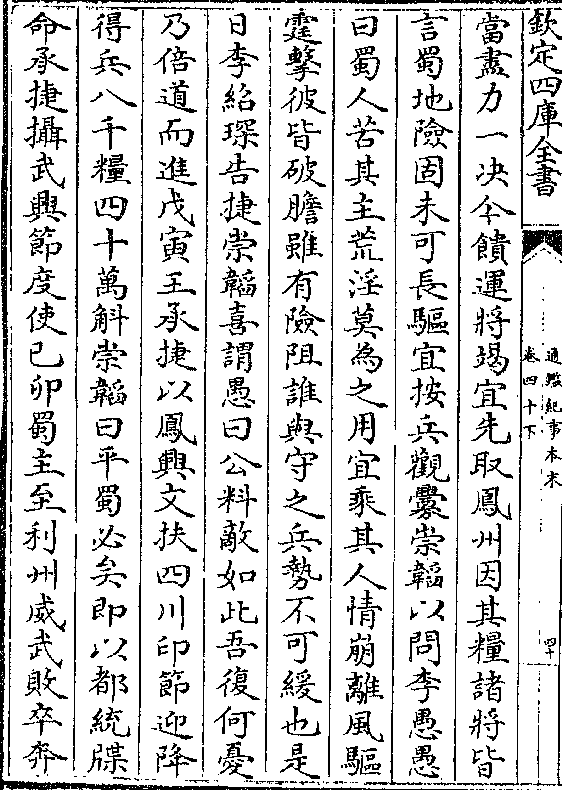 欽定四庫全書
通鑑紀事本末
卷四十下
四十
當盡力一決今饋運將竭宜先取鳳州因其糧諸將皆
言蜀地險固未可長驅宜按兵觀釁崇韜以問李愚愚
曰蜀人苦其主荒淫莫為之用宜乘其人情崩離風驅
霆擊彼皆破膽雖有險阻誰與守之兵勢不可緩也是
日李紹琛告捷崇韜喜謂愚曰公料敵如此吾復何憂
乃倍道而進戊寅王承捷以鳳興文扶四州印節迎降
得兵八千糧四十萬斛崇韜曰平蜀必矣即以都統牒
命承捷攝武興節度使己卯蜀主至利州威武敗卒奔